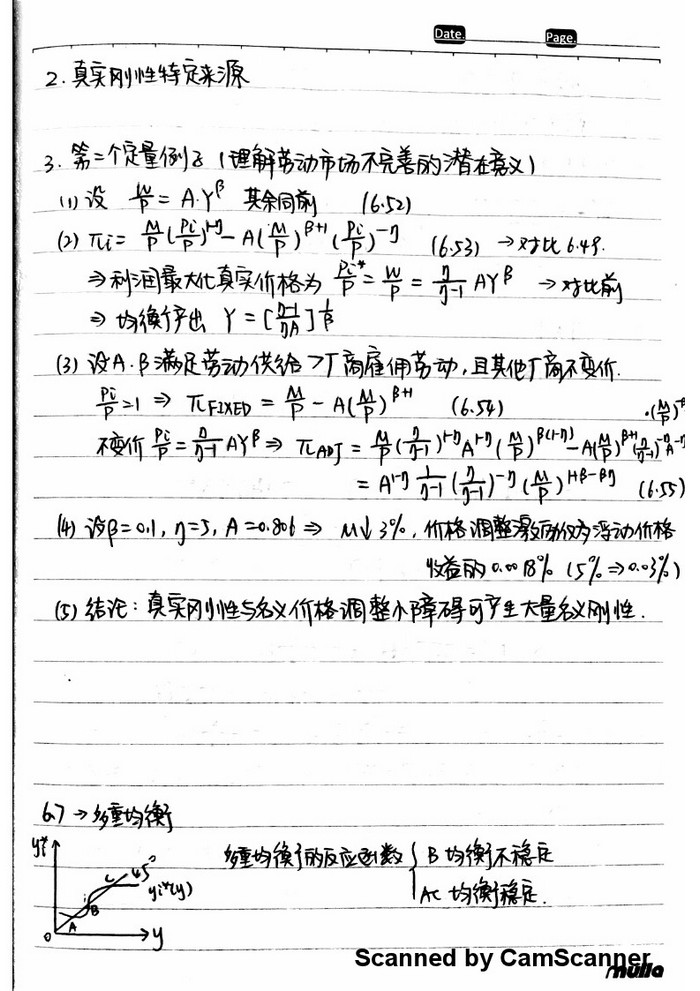 Date. Page.
2. 真实刚性特定来源
3. 第二个定量例子 (理解劳动市场不完善的潜在意义)
(1) 设 W/P = A·Y^β 其余同前 (6.52)
(2) π_i = M/P (P_i/P)^{1-η} - A(M/P)^{β+1} (P_i/P)^{-η} (6.53) → 对比 6.49.
⇒ 利润最大化真实价格为 P_i*/P = W/P = η/(η-1) AY^β → 对比前
⇒ 均衡产出 Y = [(η-1)/(ηA)]^{1/β}
(3) 设A.β满足劳动供给 > 厂商雇佣劳动, 且其他厂商不变价.
P_i/P = 1 ⇒ π_FIXED = M/P - A(M/P)^{β+1} (6.54)
不变价 P_i/P = η/(η-1) AY^β ⇒ π_ADJ = M/P (η/(η-1))^{1-η} A^{1-η} (M/P)^{β(1-η)} - A(M/P)^{β+1} (η/(η-1))^{-η} A^{-η} ·(M/P)^{-β
= A^{1-η} 1/(η-1) (η/(η-1))^{-η} (M/P)^{1+β-βη} (6.55)
(4) 设β=0.1, η=5, A=0.806 ⇒ M↓3%, 价格调整激励仅为浮动价格
收益的0.0018% (5% ⇒ 0.03%)
(5) 结论: 真实刚性与名义价格调整小障碍可产生大量名义刚性.
6.7 → 多重均衡
y_i* C 45° y_i*(y) B A O y
多重均衡的反应函数 { B 均衡不稳定
AC 均衡稳定.
Scanned by CamScanner